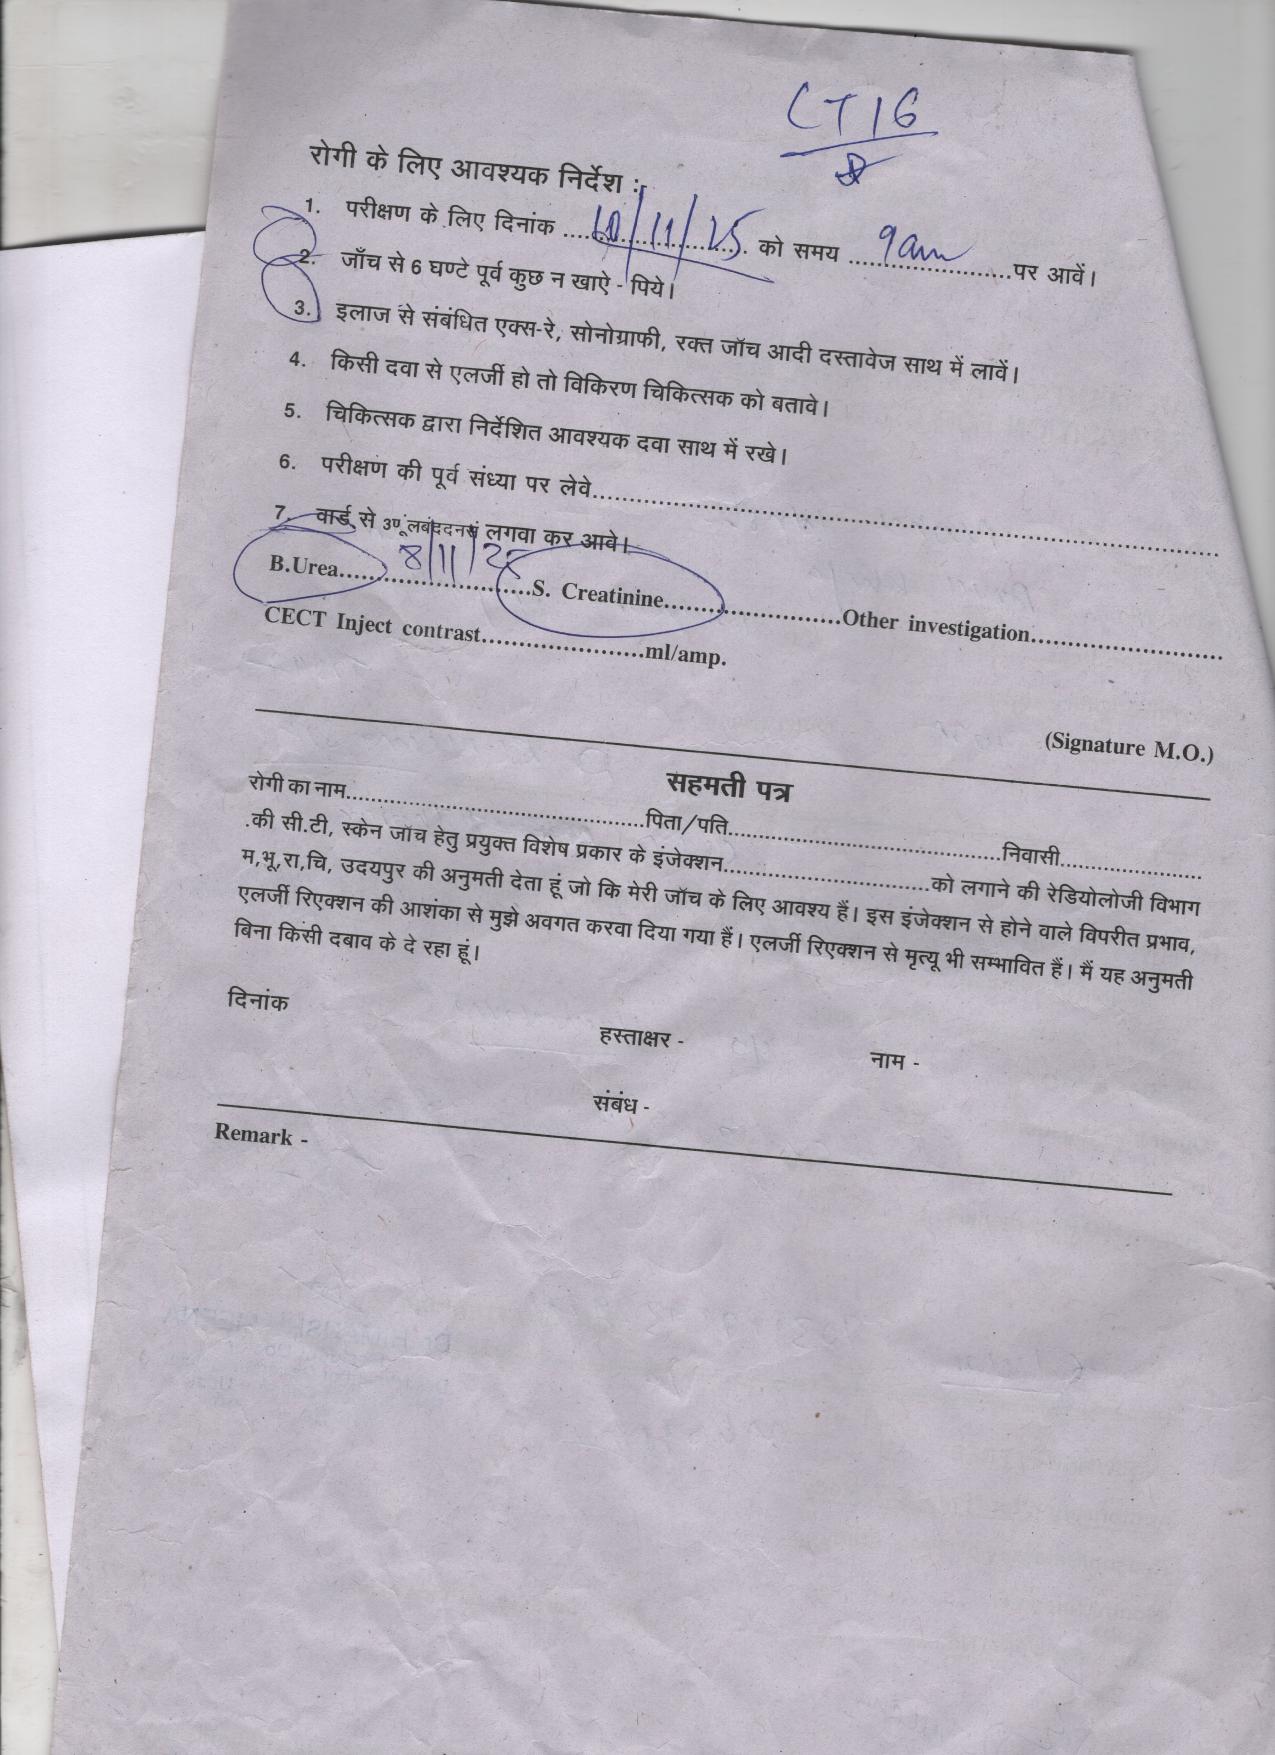 CT 16
रोगी के लिए आवश्यक निर्देश :
1. परीक्षण के लिए दिनांक ....10/11/25.... को समय ....9am....पर आवें।
2. जाँच से 6 घण्टे पूर्व कुछ न खाऐ - पिये।
3. इलाज से संबंधित एक्स-रे, सोनोग्राफी, रक्त जॉच आदी दस्तावेज साथ में लावें।
4. किसी दवा से एलर्जी हो तो विकिरण चिकित्सक को बतावे।
5. चिकित्सक द्वारा निर्देशित आवश्यक दवा साथ में रखे।
6. परीक्षण की पूर्व संध्या पर लेवे....................
7. वार्ड से लगवा कर आवे।
8/11/25
B.Urea....................S. Creatinine....................Other investigation....................
CECT Inject contrast....................ml/amp.
(Signature M.O.)
सहमती पत्र
रोगी का नाम....................पिता/पति....................निवासी....................
.की सी.टी, स्केन जॉच हेतु प्रयुक्त विशेष प्रकार के इंजेक्शन....................को लगाने की रेडियोलोजी विभाग
म,भू,रा,चि, उदयपुर की अनुमती देता हूं जो कि मेरी जॉच के लिए आवश्य हैं। इस इंजेक्शन से होने वाले विपरीत प्रभाव,
एलर्जी रिएक्शन की आशंका से मुझे अवगत करवा दिया गया हैं। एलर्जी रिएक्शन से मृत्यू भी सम्भावित हैं। मैं यह अनुमती
बिना किसी दबाव के दे रहा हूं।
दिनांक
हस्ताक्षर -
नाम -
संबंध -
Remark -